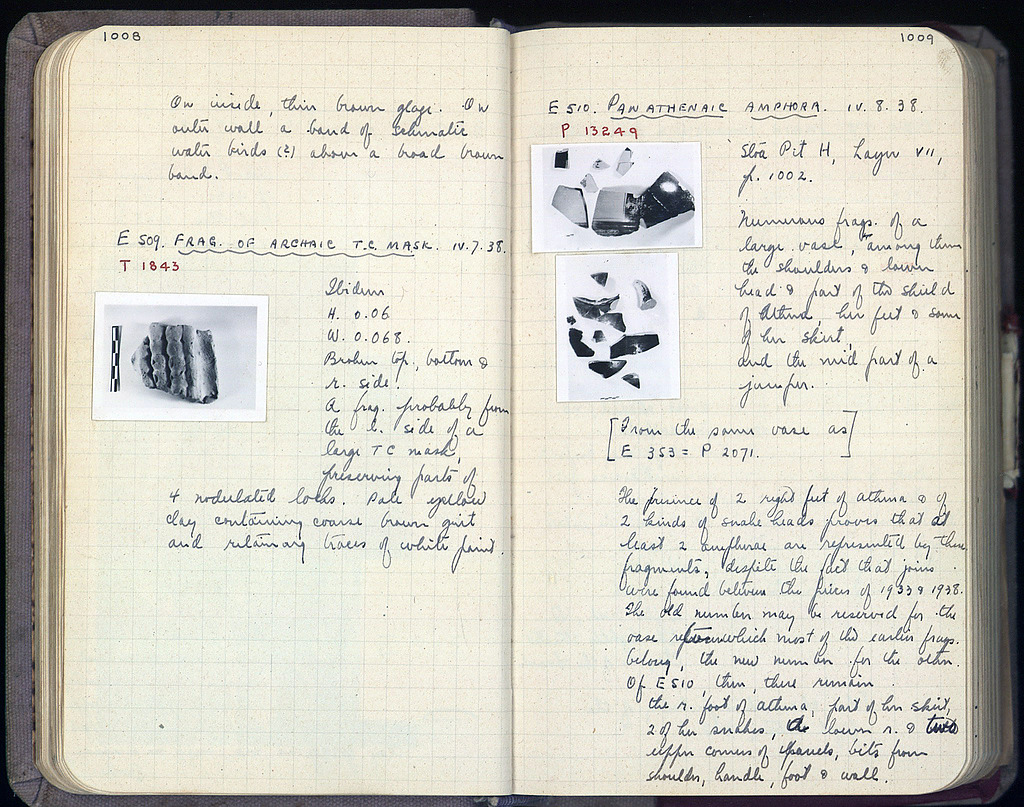 1008
On inside, thin brown glaze. On
outer wall a band of schematic
water birds (?) above a broad brown
band.
E 509. FRAG. OF ARCHAIC T.C. MASK. IV.7.38.
T 1843
Ibidem
H. 0.06
W. 0.068.
Broken top, bottom &
r. side.
A frag. probably from
the l. side of a
large TC mask,
preserving parts of
4 nodulated locks. Pale yellow
clay containing coarse brown grit
and retaining traces of white paint.
1009
E 510. PANATHENAIC AMPHORA. IV. 8. 38.
P 13249
Stoa Pit H, Layer VII,
p. 1002.
Numerous frags. of a
large vase, among them
the shoulders & lower
head & part of the shield
of Athena, her feet & some
of her skirt,
and the mid part of a
jumper.
[From the same vase as]
[E 353 = P 2071.]
The presence of 2 right feet of Athena & of
2 kinds of snake heads proves that at
least 2 amphorae are represented by these
fragments, despite the fact that joins
were found between the pieces of 1933 & 1938.
The old number may be reserved for the
vase to which most of the earlier frags.
belong, the new number for the other.
Of E 510, then, there remain
the r. foot of Athena, part of her skirt,
2 of her snakes, lower r. & two
upper corners of panels, bits from
shoulder, handle, foot & wall.